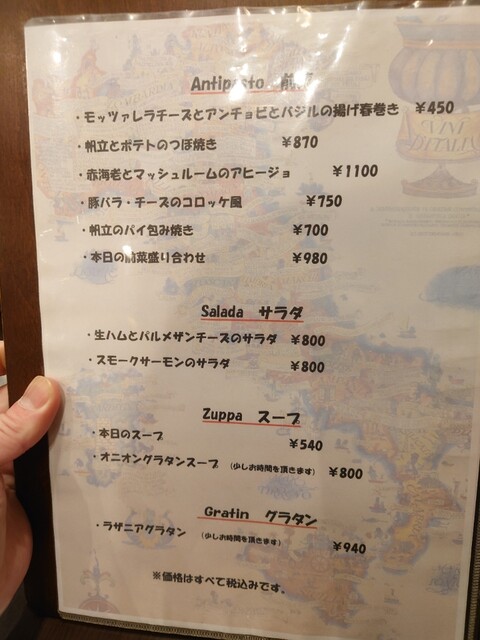 Antipasto 前菜
・モッツァレラチーズとアンチョビとバジルの揚げ春巻き ¥450
・帆立とポテトのつぼ焼き ¥870
・赤海老とマッシュルームのアヒージョ ¥1100
・豚バラ・チーズのコロッケ風 ¥750
・帆立のパイ包み焼き ¥700
・本日の前菜盛り合わせ ¥980
Salada サラダ
・生ハムとパルメザンチーズのサラダ ¥800
・スモークサーモンのサラダ ¥800
Zuppa スープ
・本日のスープ ¥540
・オニオングラタンスープ (少しお時間を頂きます) ¥800
Gratin グラタン
・ラザニアグラタン (少しお時間を頂きます) ¥940
※価格はすべて税込みです。
VINI
D'ITALIA